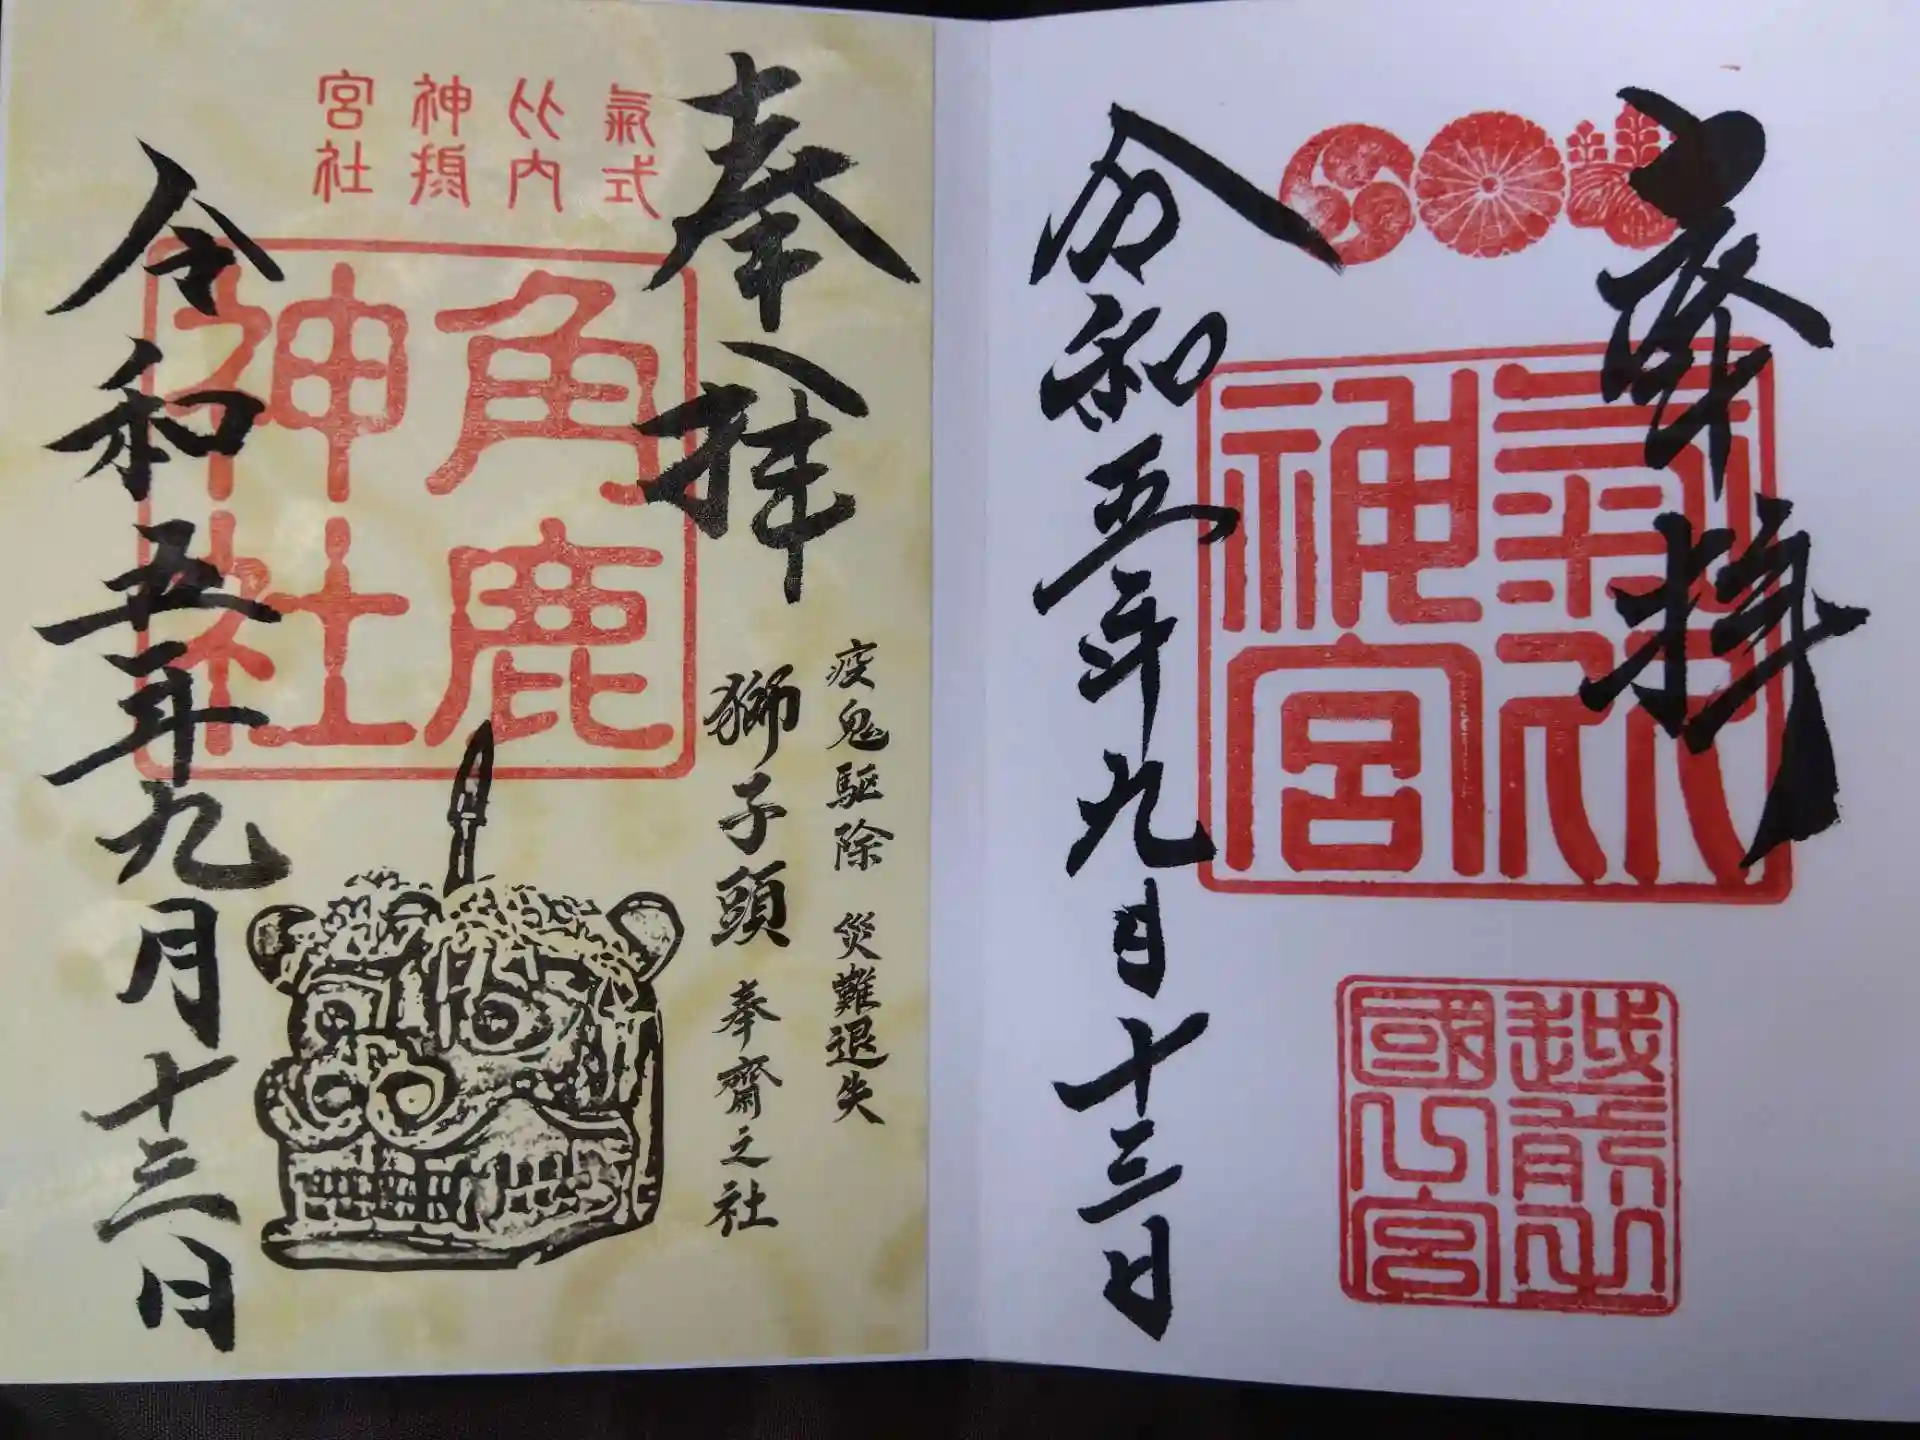 奉拝
氣比神宮
越前之國一宮
令和五年九月十三日
奉拝
疫鬼駆除 災難退失
獅子頭 奉齋之社
氣比神宮
式内摂社
角鹿神社
令和五年九月十三日